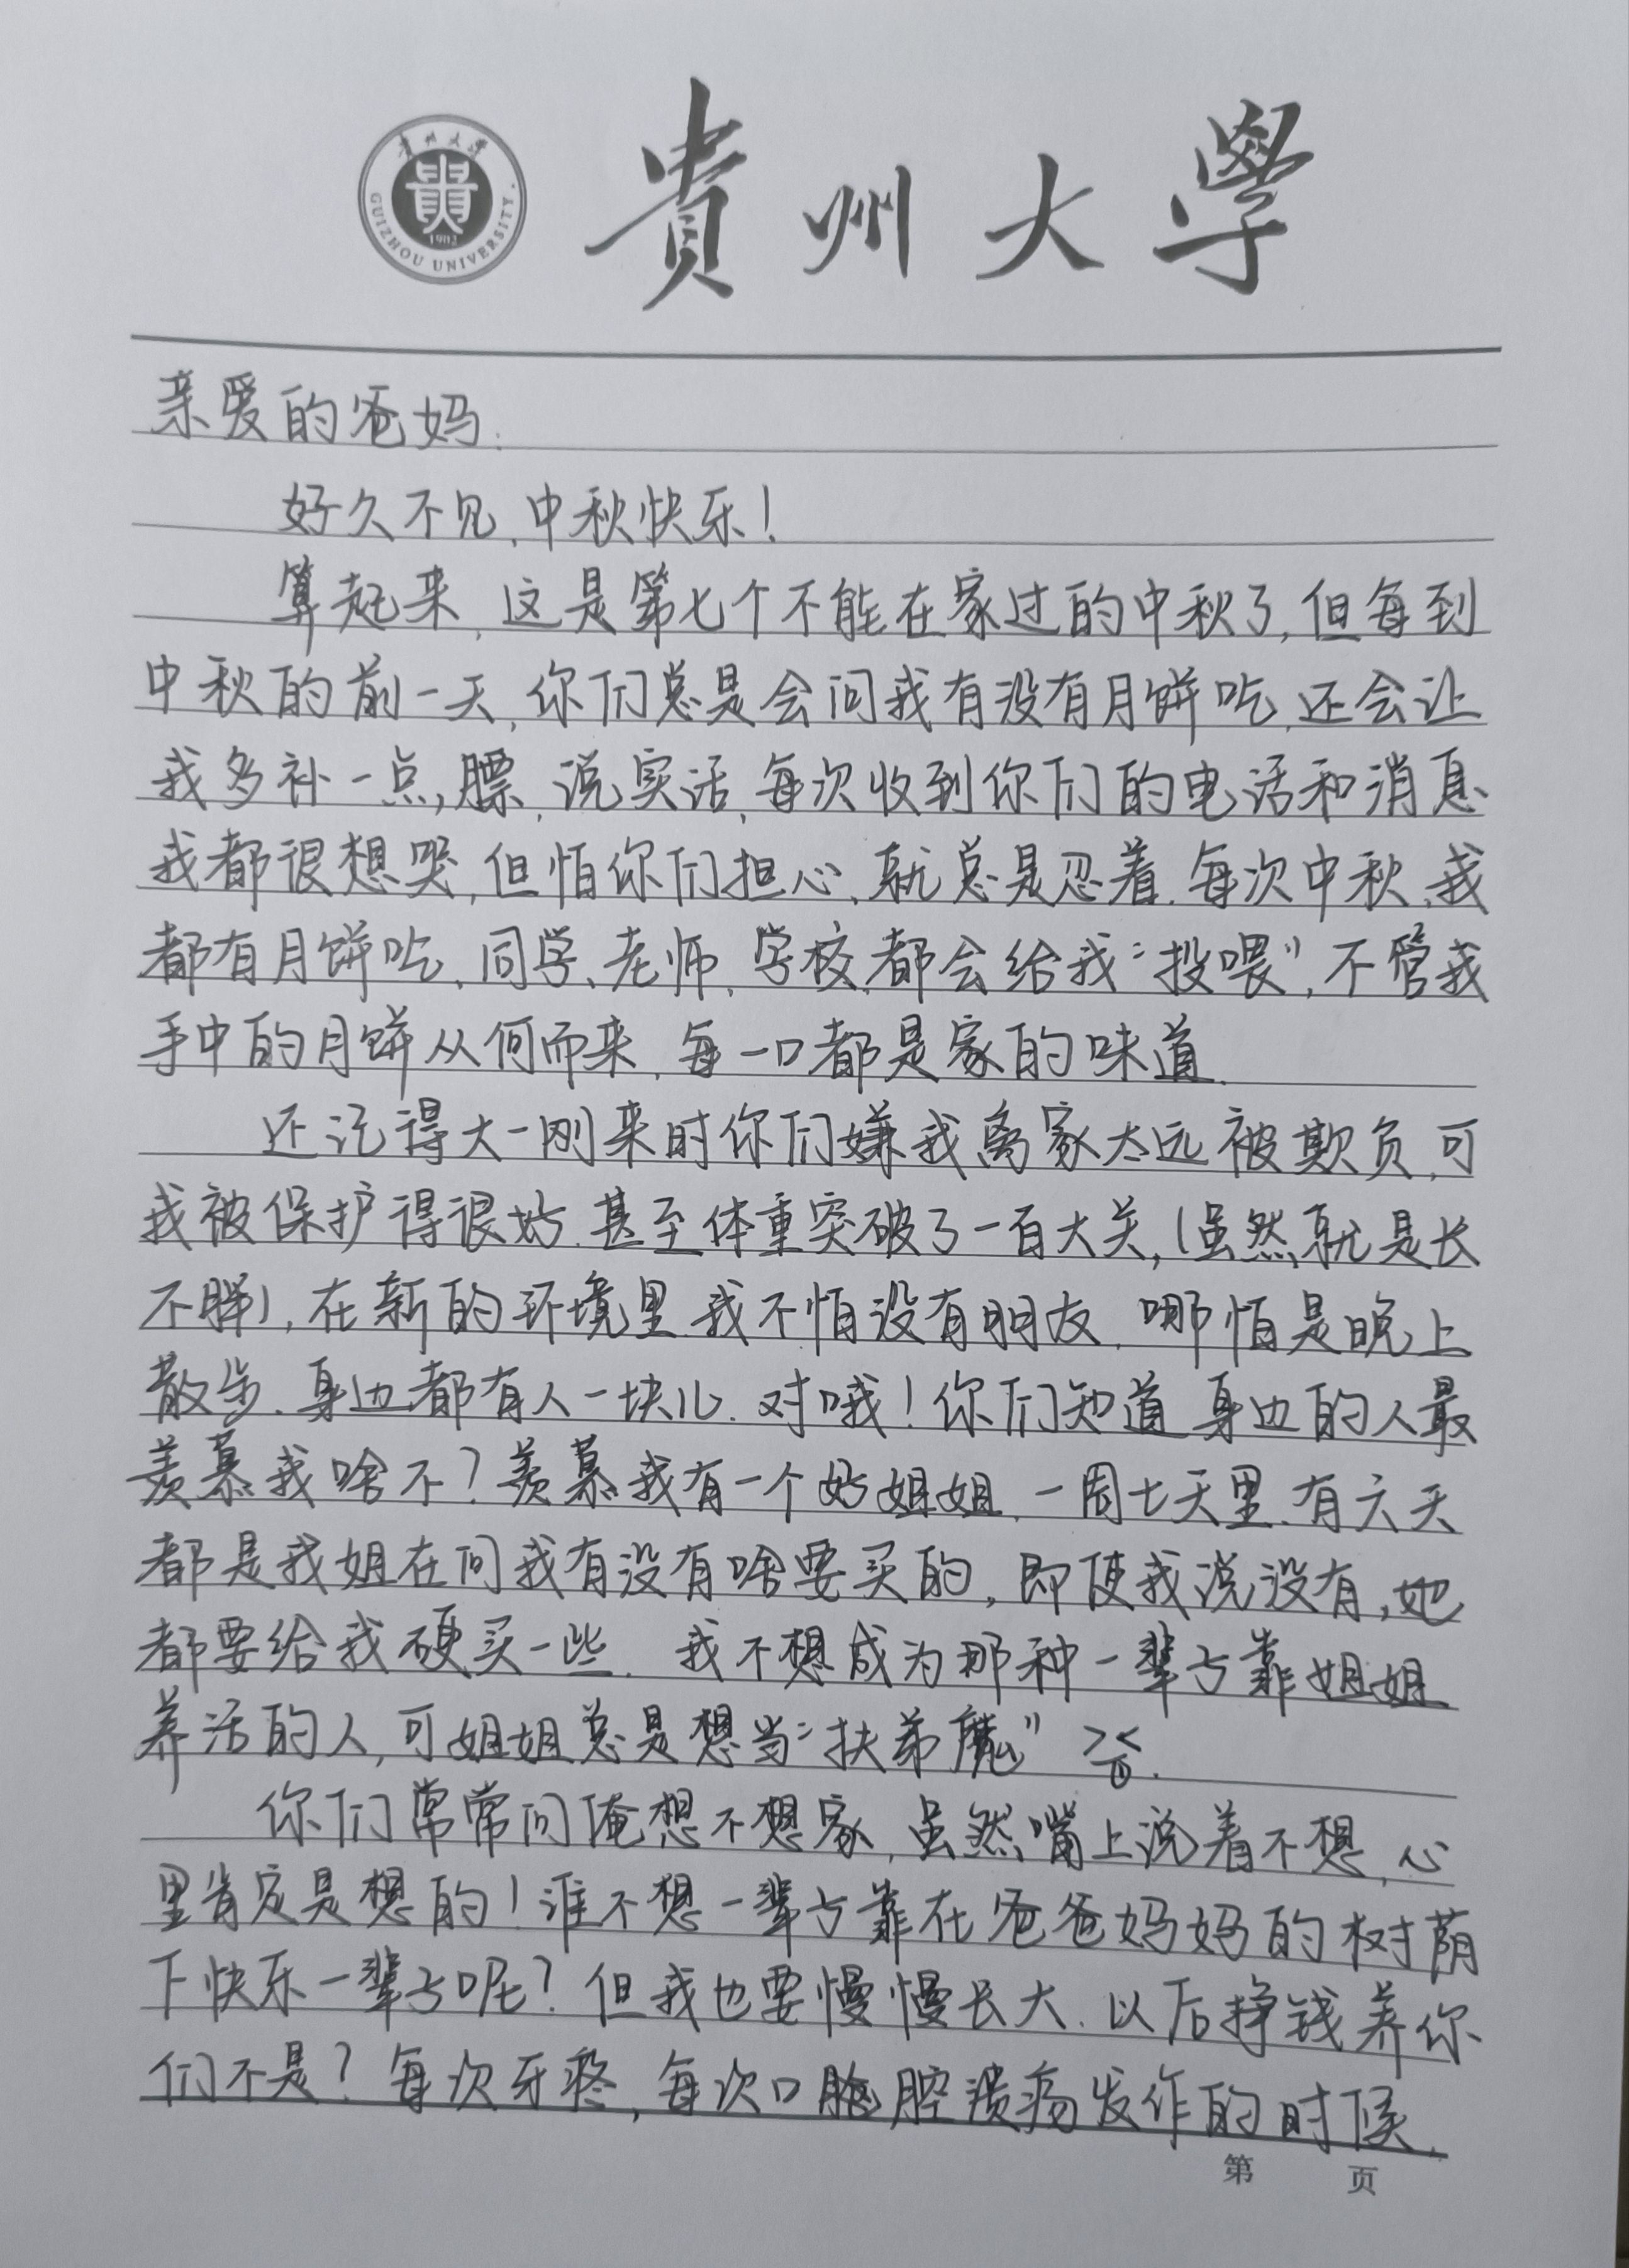 貴州大學
貴州大學
GUIZHOU UNIVERSITY
1902
亲爱的爸妈:
好久不见,中秋快乐!
算起来,这是第七个不能在家过的中秋了,但每到
中秋的前一天,你们总是会问我有没有月饼吃,还会让
我多补一点,膘,说实话,每次收到你们的电话和消息
我都很想哭,但怕你们担心,就总是忍着.每次中秋,我
都有月饼吃,同学、老师、学校,都会给我“投喂”,不管我
手中的月饼从何而来,每一口都是家的味道.
还记得大一刚来时你们嫌我离家太远被欺负,可
我被保护得很好.甚至体重突破了一百大关,(虽然就是长
不胖),在新的环境里.我不怕没有朋友,哪怕是晚上
散步.身边都有人一块儿.对哦!你们知道身边的人最
羡慕我啥不?羡慕我有一个好姐姐,一周七天里.有六天
都是我姐在问我有没有啥要买的,即使我说没有,她
都要给我硬买一些.我不想成为那种一辈子靠姐姐
养活的人,可姐姐总是想当“扶弟魔”
你们常常问俺想不想家,虽然嘴上说着不想,心
里肯定是想的!谁不想一辈子靠在爸爸妈妈的树荫
下快乐一辈子呢?但我也要慢慢长大.以后挣钱养你
们不是?每次牙疼,每次口腔溃疡发作的时候,
第 页